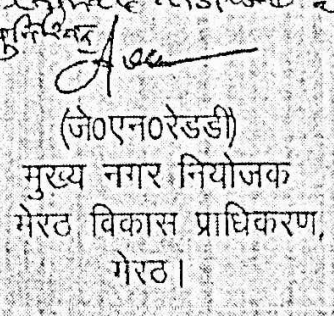 (जे0एन0रेडडी)
मुख्य नगर नियोजक
मेरठ विकास प्राधिकरण,
मेरठ।